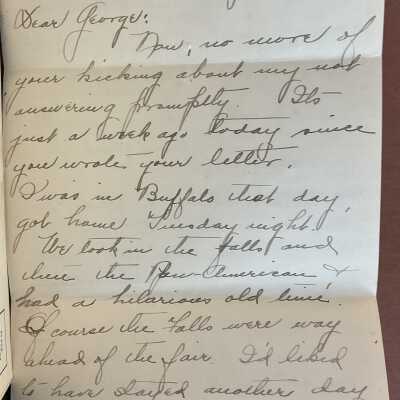 Dear George:
Now, no more of
your kicking about my not
answering promptly. Its
just a week ago today since
you wrote your letter.
I was in Buffalo that day,
got home Tuesday night.
We took in the Falls and
then the Pan-American, &
had a hilarious old time.
Of course the Falls were way
ahead of the fair. I'd liked
to have stayed another day